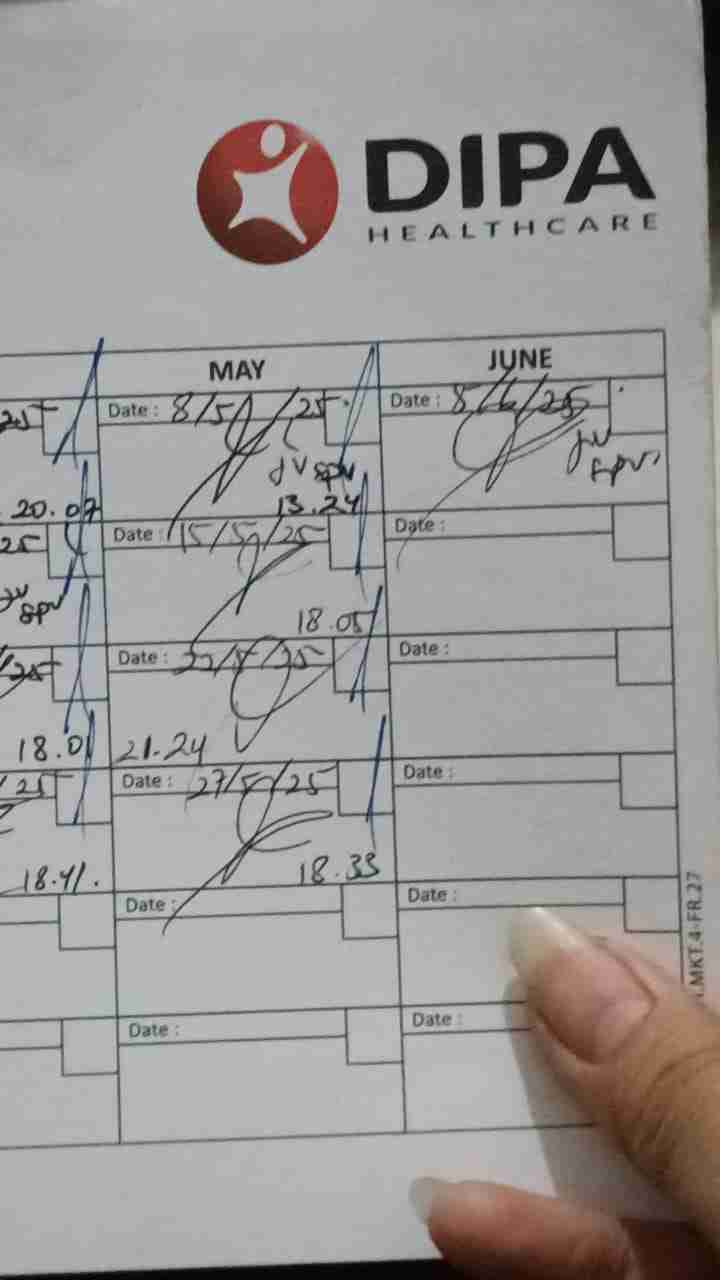 DIPA
HEALTHCARE
MAY
JUNE
25
Date : 8/5/25
Date : 8/6/25
JV spv
JV spv
20.07
13.24
25
Date : 15/5/25
Date :
JV spv
18.05
25
Date : 22/5/25
Date :
18.01
21.24
25
Date : 27/5/25
Date :
18.41.
18.33
Date :
Date :
Date :
Date :
.MKT.4-FR.27